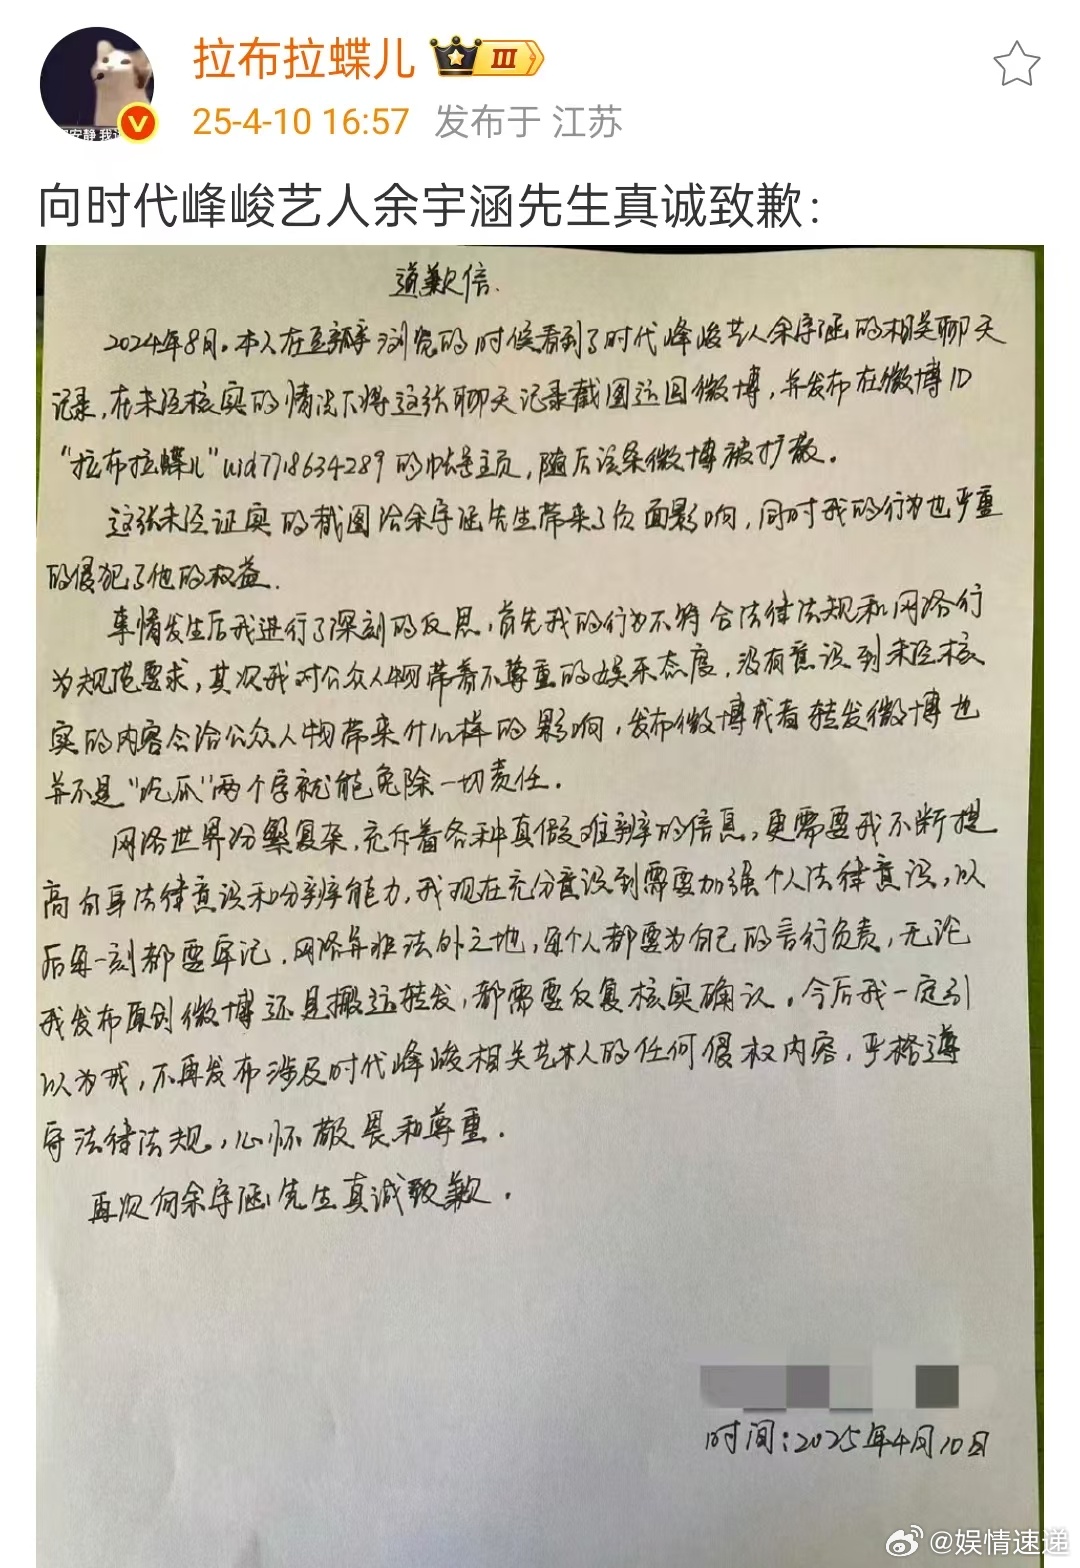 拉布拉蝶儿 III
25-4-10 16:57 发布于 江苏
安静 我
向时代峰峻艺人余宇涵先生真诚致歉：
道歉信.
2024年8月.本人在豆瓣浏览的时候看到了时代峰峻艺人余宇涵的相关聊天
记录,在未经核实的情况下将这张聊天记录截图运回微博,并发布在微博ID
"拉布拉蝶儿"uid7718634289的帐号主页,随后该条微博被扩散.
这张未经证实的截图给余宇涵先生带来了负面影响,同时我的行为也严重
的侵犯了他的权益.
事情发生后我进行了深刻的反思,首先我的行为不符合法律法规和网络行
为规范要求,其次我对公众人物带着不尊重的娱乐态度,没有意识到未经核
实的内容会给公众人物带来什么样的影响,发布微博或者转发微博也
并不是"吃瓜"两个字就能免除一切责任.
网络世界纷繁复杂,充斥着各种真假难辨的信息,更需要我不断提
高自身法律意识和分辨能力,我现在充分意识到需要加强个人法律意识,以
后每一刻都要牢记,网络并非法外之地,每个人都要为自己的言行负责,无论
我发布原创微博还是搬运转发,都需要反复核实确认.今后我一定引
以为戒,不再发布涉及时代峰峻相关艺人的任何侵权内容,严格遵
守法律法规,心怀敬畏和尊重.
再次向余宇涵先生真诚致歉.
时间:2025年4月10日
@娱情速递